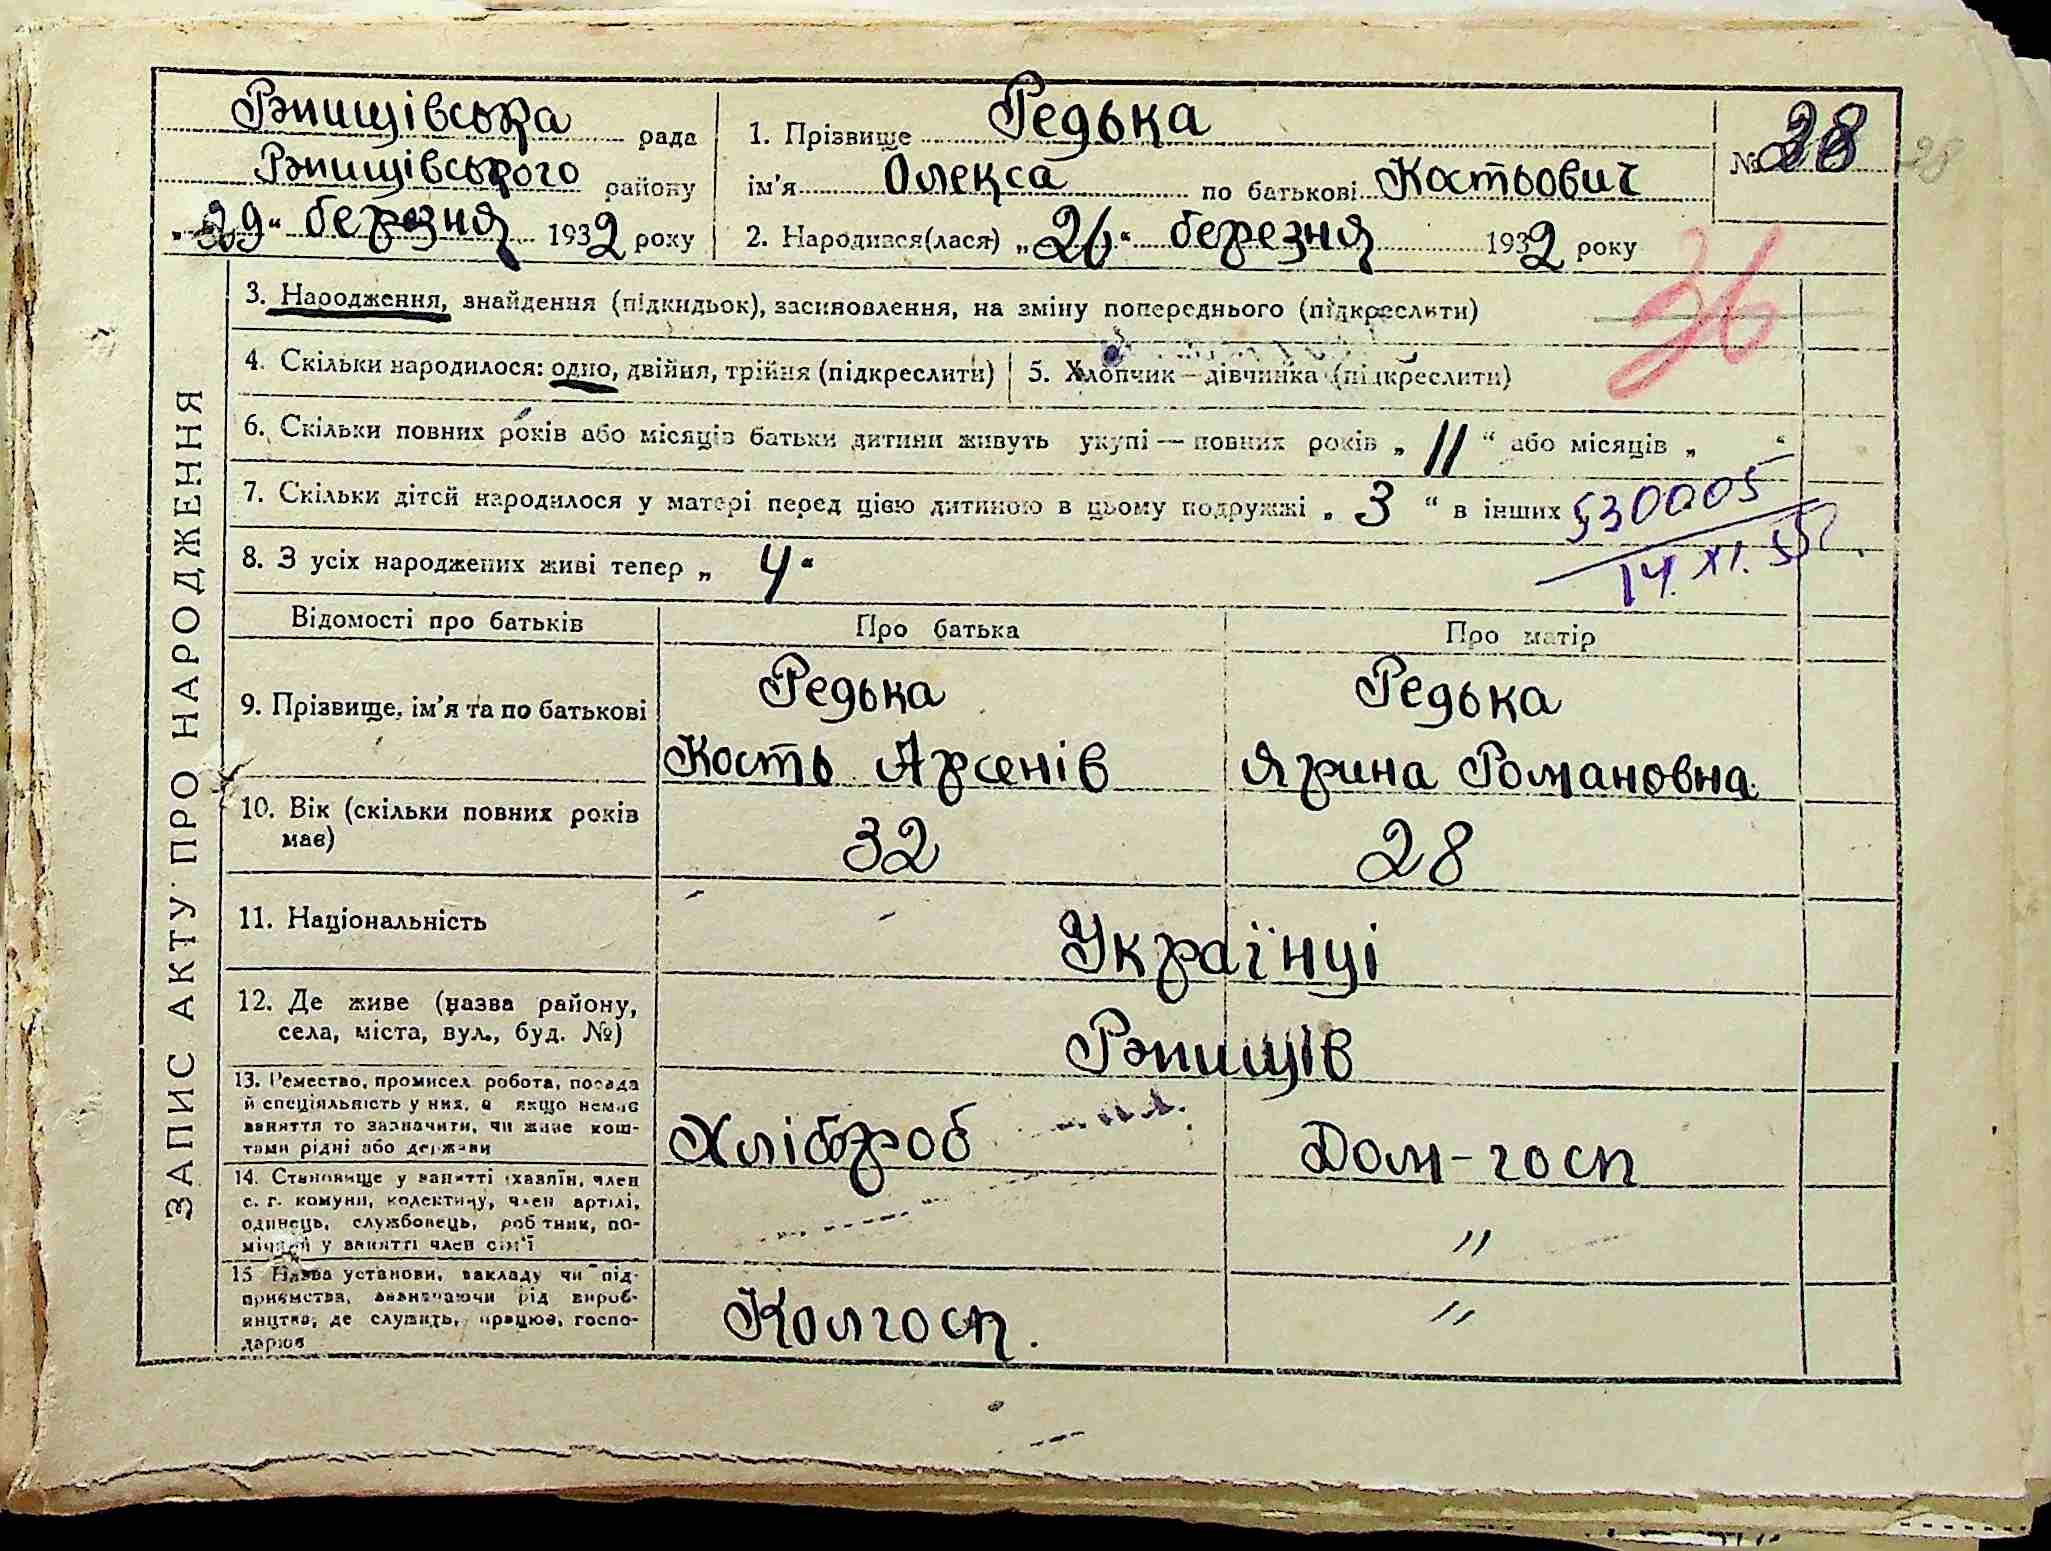 Рэпищівська рада
Рэпищівського району
„29“ березня 1932 року
1. Прізвище Редька
ім'я Олекса по батькові Костьович
№ 28
28
2. Народився(лася) „26“ березня 1932 року
36
ЗАПИС АКТУ ПРО НАРОДЖЕННЯ
3. Народження, знайдення (підкидьок), засиновлення, на зміну попереднього (підкреслити)
4. Скільки народилося: одно, двійня, трійня (підкреслити)
5. Хлопчик — дівчинка (підкреслити)
6. Скільки повних років або місяців батьки дитини живуть укупі — повних років „11“ або місяців „ “
7. Скільки дітей народилося у матері перед цією дитиною в цьому подружжі „3“ в інших
530005
14.XI.55
8. З усіх народжених живі тепер „4“
Відомості про батьків Про батька Про матір
9. Прізвище, ім'я та по батькові
Редька
Кость Арсенів
Редька
Ярина Романовна
10. Вік (скільки повних років
має)
32 28
11. Національність
Українці
12. Де живе (назва району,
села, міста, вул., буд. №)
Рэпищів
13. Ремество, промисел робота, посада
й спеціяльність у них, а якщо немає
заняття то зазначити, чи живе кош-
тами рідні або держави
Хлібороб Дом-госп
14. Становище у занятті (хазяїн, член
с. г. комуни, колективу, член артілі,
одинець, службовець, робітник, по-
мічний у занятті член сім'ї
"
15 Назва установи, закладу чи під-
приємства, зазначаючи рід вироб-
ництва, де служить, працює, госпо-
дарює
Колгосп. "